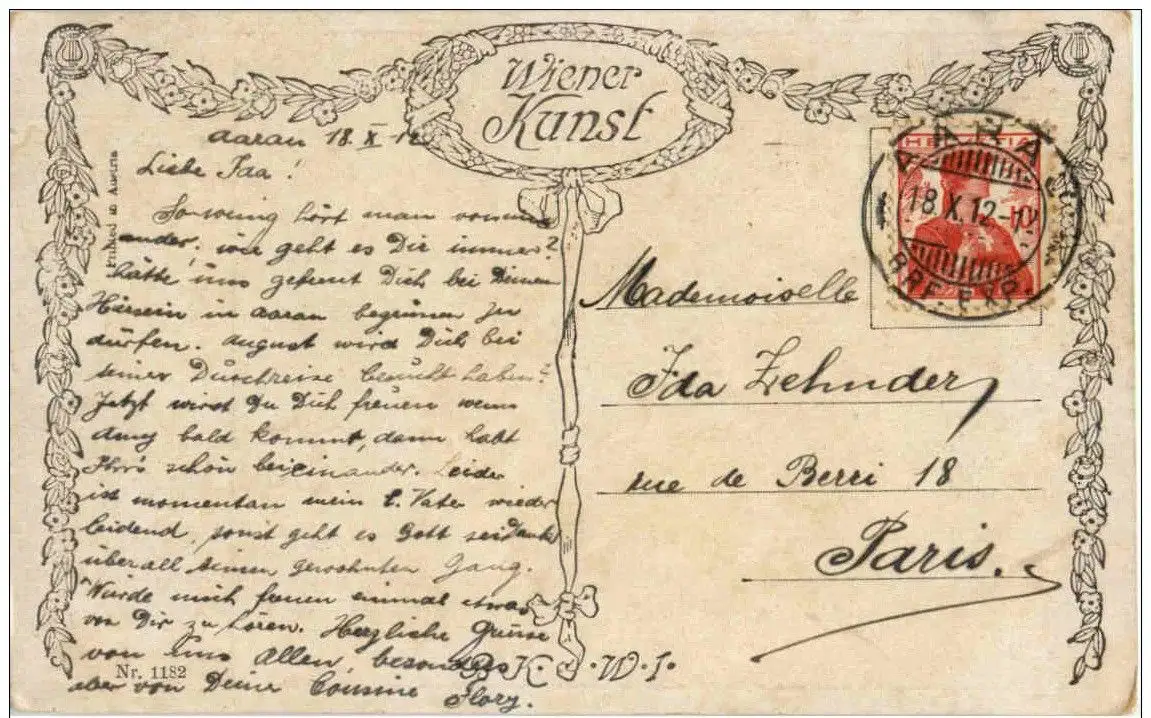 Wiener
Kunst
Aarau 18. X 12
Liebe Ida!
So wenig hört man vonein
ander, wie geht es Dir immer?
hätte uns gefreut Dich bei Deinem
Hiersein in Aarau begrüssen zu
dürfen. August wird Dich bei
seiner Durchreise besucht haben?
Jetzt wirst Du Dich freuen wenn
Anny bald kommt, dann habt
Ihr's schön beieinander. Leider
ist momentan mein l. Vater wieder
leidend, sonst geht es Gott sei Dank
überall seinen gewohnten Gang.
Würde mich freuen einmal etwas
von Dir zu hören. Herzliche Grüsse
von uns Allen, besonders
aber von Deine Cousine Flory.
Printed in Austria
Nr. 1182
B.K.W.I.
AARAU
18.X.12-12
BRF.EXP.
HELVETIA
Mademoiselle
Ida Zehnder,
rue de Berri 18
Paris.